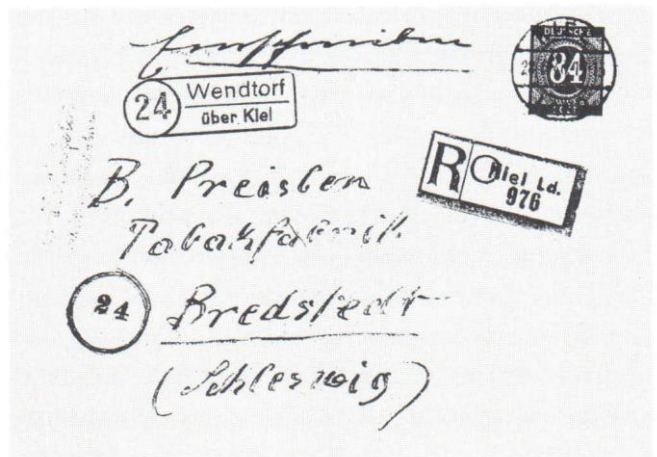 Einschreiben
DEUTSCHE
84
24 Wendtorf
über Kiel
R Kiel Ld.
976
B.
Tabakfabrik.
24 Bredstedt
(Schleswig)